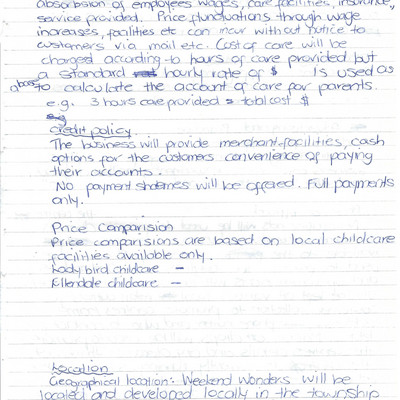 absorbsion of employees wages, care facilities, insurance,
service provided. Price flunuations through wage
increases, facilities etc can incur without notice to
customers via mail etc. Cost of care will be
charged according to hours of care provided but
a standard hourly rate of $ is used as
a basis to calculate the account of care for parents.
e.g. 3 hours care provided = total cost $
e.g
Credit policy
The business will provide merchant facilities, cash
options for the customers convenience of paying
their accounts.
No payment shdemes will be offered. Full payments
only.
Price Comparision
Price comparisions are based on local childcare
facilities available only.
Lady bird childcare -
Ellendale childcare -
Location
Geographical location:- Weekend Wonders will be
located and developed locally in the township